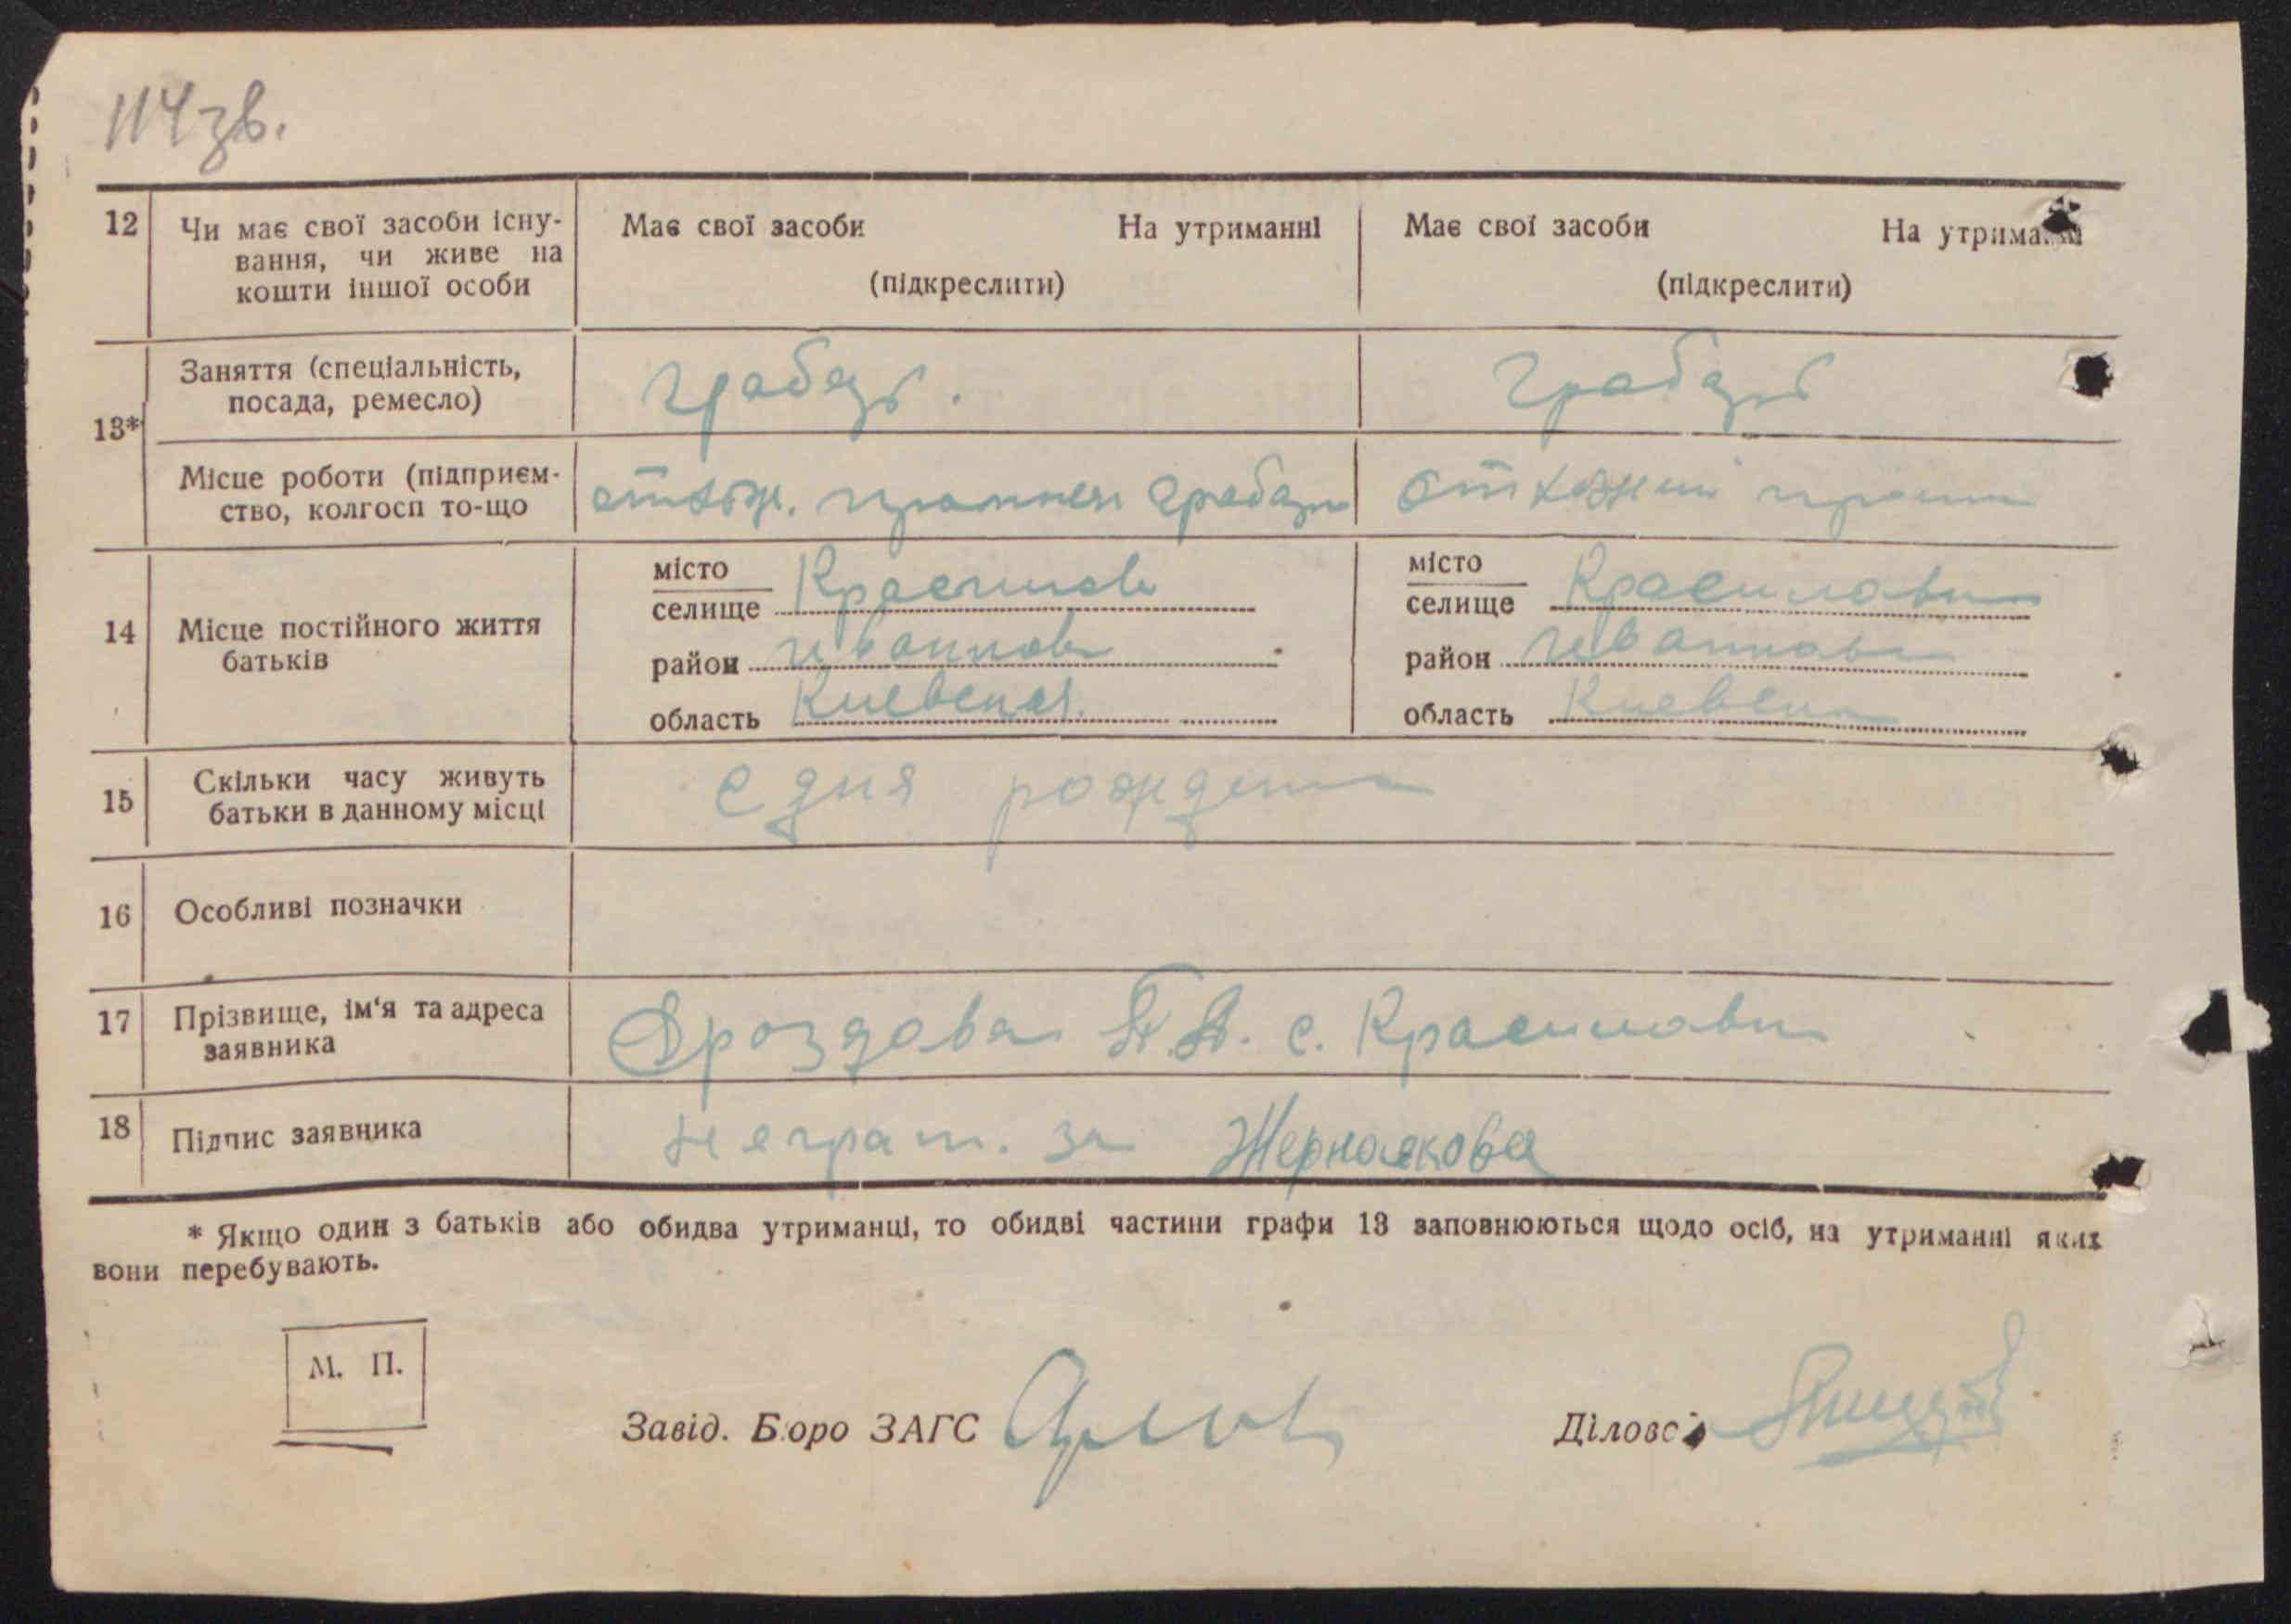 114 зв.
12 Чи має свої засоби існу-
вання, чи живе на
кошти іншої особи
Має свої засоби На утриманні
(підкреслити)
Має свої засоби На утрима
(підкреслити)
13* Заняття (спеціальність,
посада, ремесло)
грабарь.
грабарь
Місце роботи (підприєм-
ство, колгосп то-що
отхож.
отхожий
14 Місце постійного життя
батьків
місто
селище
район
область Киевская
місто
селище Красиловка
район
область Киевская
15 Скільки часу живуть
батьки в данному місці
с дня рождения
16 Особливі позначки
17 Прізвище, ім'я та адреса
заявника
Дроздова с. Красиловка
18 Підпис заявника
неграм. за
* Якщо один з батьків або обидва утриманці, то обидві частини графи 13 заповнюються щодо осіб, на утриманні яких
вони перебувають.
М. П.
Завід. Бюро ЗАГС
Діловод